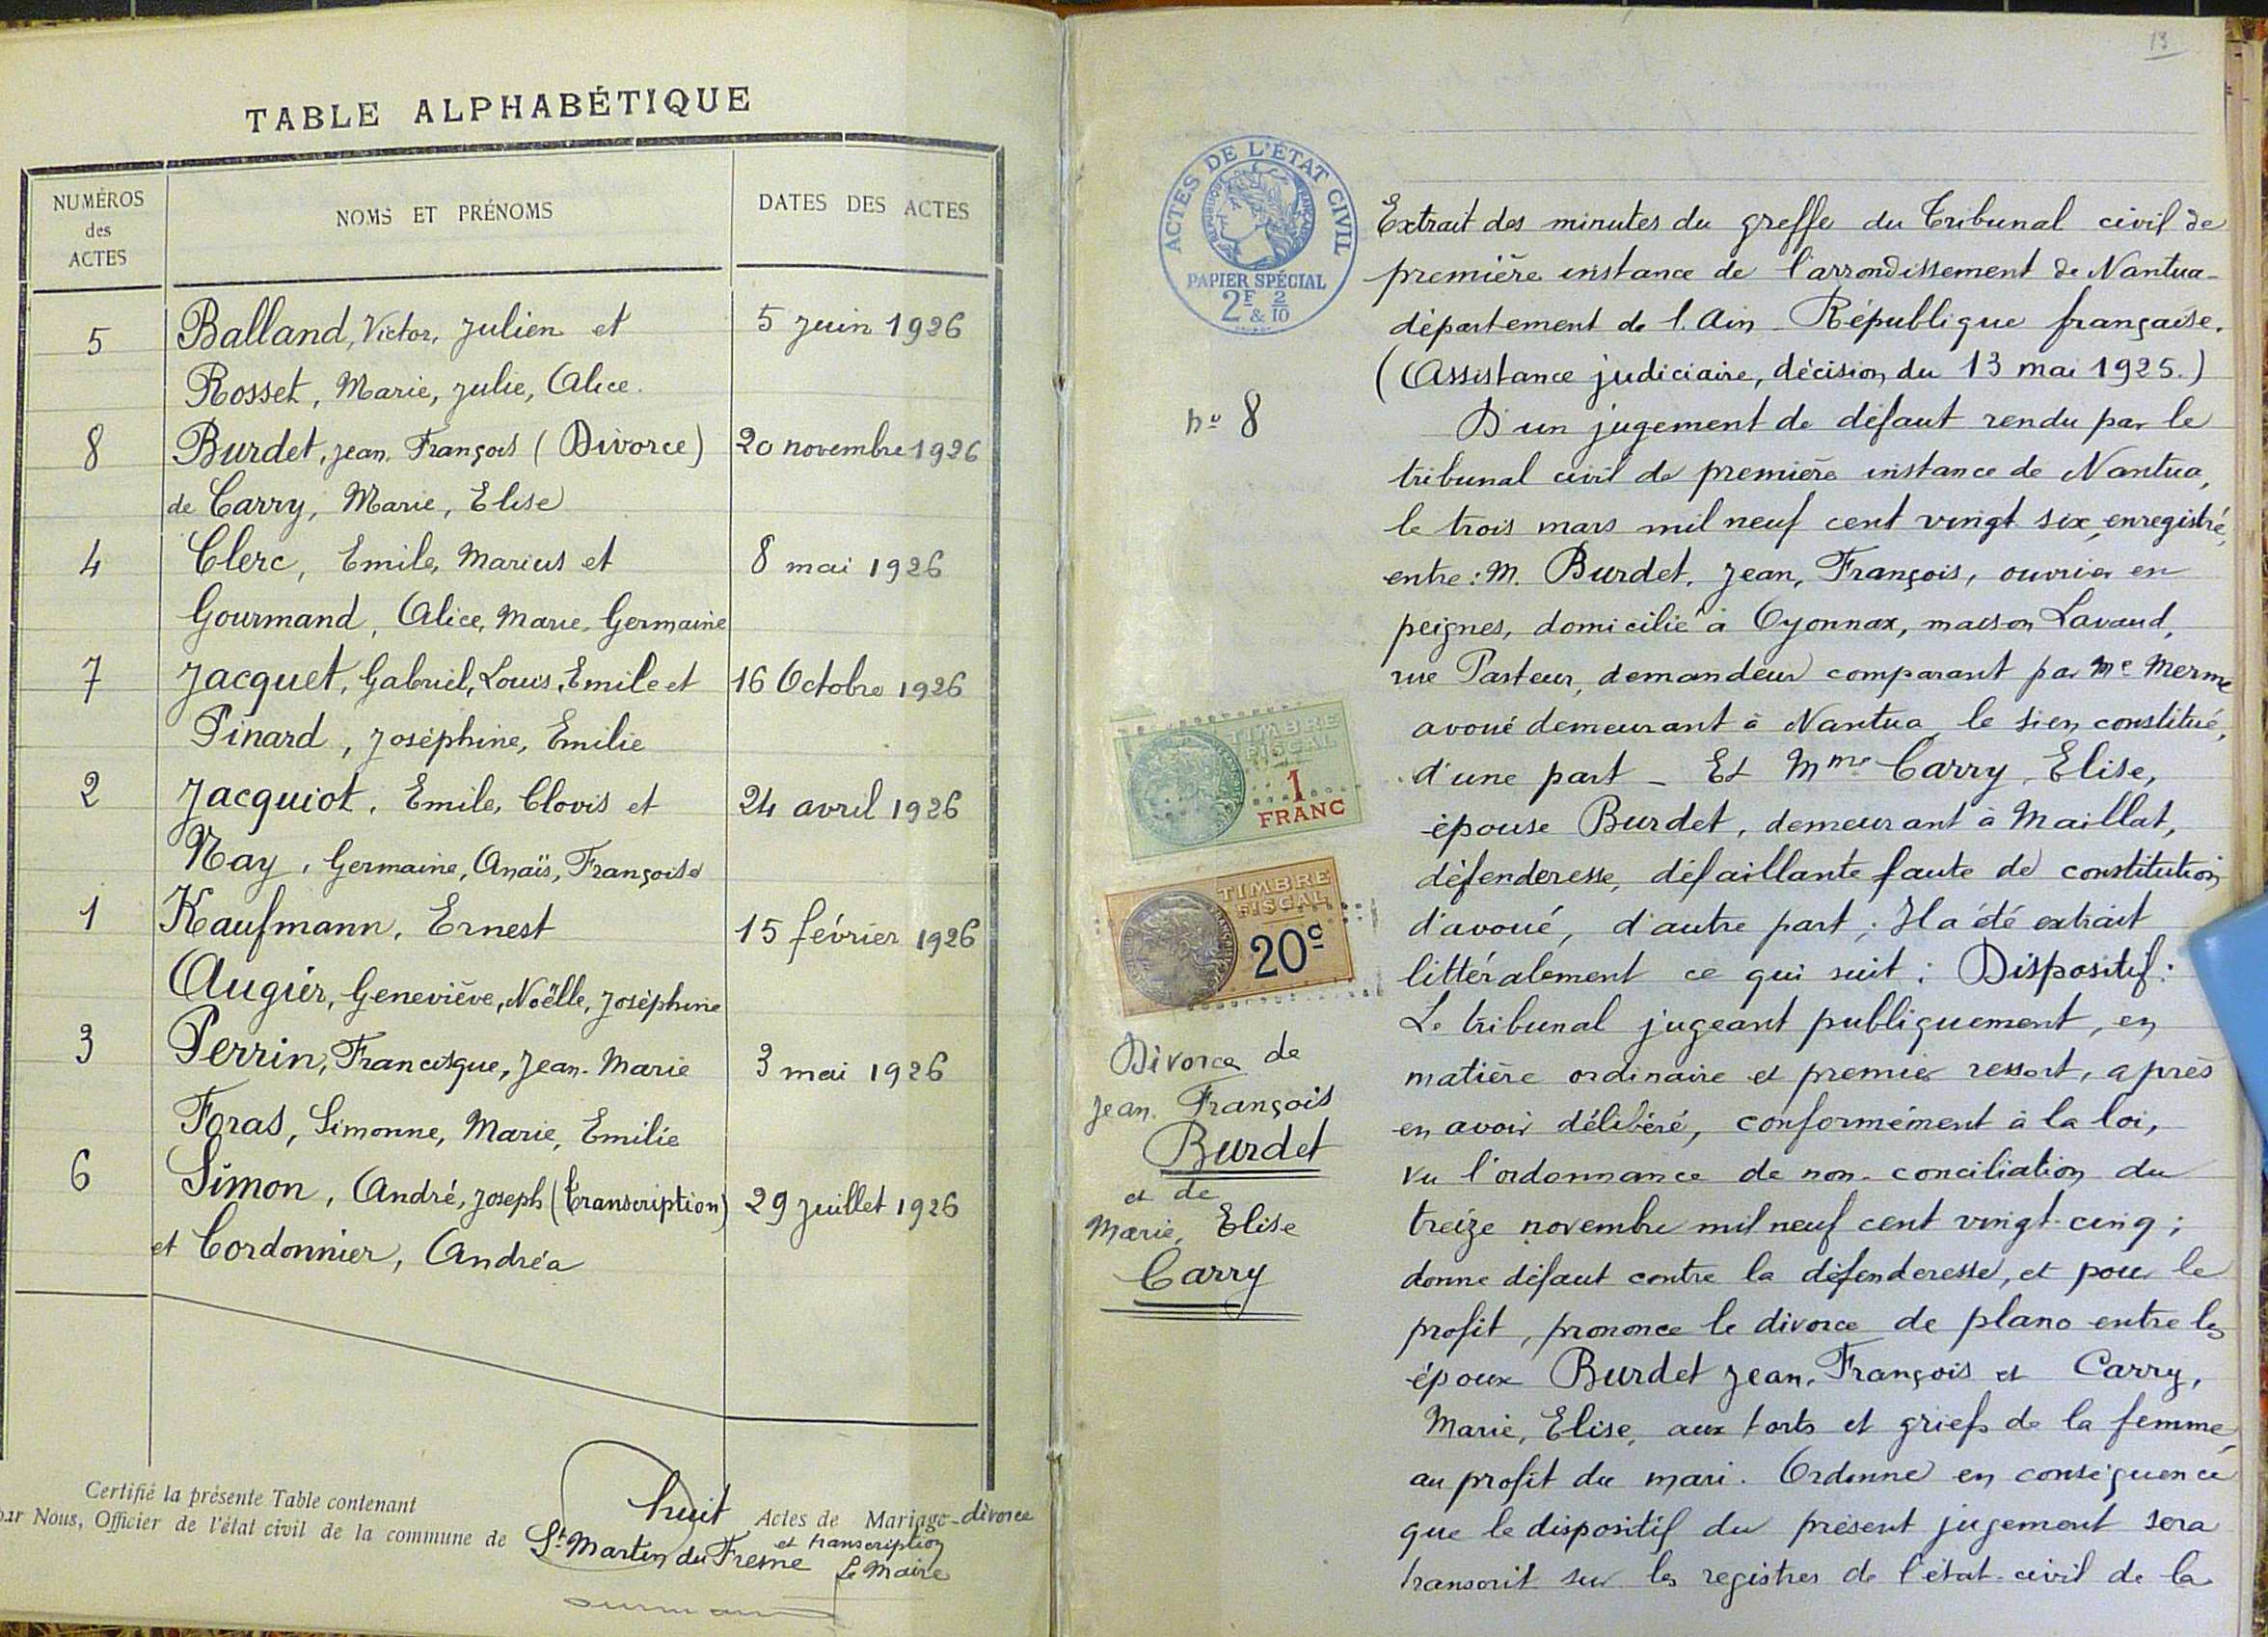 TABLE ALPHABÉTIQUE
NUMÉROS
des
ACTES
NOMS ET PRÉNOMS
DATES DES ACTES
5 Balland, Victor, Julien et 5 juin 1926
Rosset, Marie, Julie, Alice.
8 Burdet, Jean, François (Divorce) 20 novembre 1926
de Carry, Marie, Elise
4 Clerc, Emile, Marius et 8 mai 1926
Gourmand, Alice, Marie, Germaine
7 Jacquet, Gabriel, Louis, Emile et 16 Octobre 1926
Pinard, Joséphine, Emilie
2 Jacquiot, Emile, Clovis et 24 avril 1926
Nay, Germaine, Anaïs, Françoise
1 Kaufmann, Ernest 15 février 1926
Augier, Geneviève, Noëlle, Joséphine
3 Perrin, Francisque, Jean-Marie 3 mai 1926
Foras, Simonne, Marie, Emilie
6 Simon, André, Joseph (Transcription) 29 juillet 1926
et Cordonnier, Andréa
Certifié la présente Table contenant huit Actes de Mariage-divorce
et transcription
par Nous, Officier de l'état civil de la commune de St Martin du Fresne
Le Maire
13
ACTES DE L'ÉTAT CIVIL
RÉPUBLIQUE FRANÇAISE
PAPIER SPÉCIAL
2F & 2/10
Extrait des minutes du greffe du Tribunal civil de
première instance de l'arrondissement de Nantua-
département de l'Ain - République française.
(Assistance judiciaire, décision du 13 mai 1925.)
no 8
D'un jugement de défaut rendu par le
tribunal civil de première instance de Nantua,
le trois mars mil neuf cent vingt six, enregistré,
entre: M. Burdet, Jean, François, ouvrier en
peignes, domicilié à Oyonnax, maison Lavaud,
rue Pasteur, demandeur comparant par Me Merme
avoué demeurant à Nantua, le sien constitué,
d'une part - Et Mme Carry, Elise,
épouse Burdet, demeurant à Maillat,
défenderesse, défaillante faute de constitution
d'avoué, d'autre part; Il a été extrait
littéralement ce qui suit: Dispositif:
Le tribunal jugeant publiquement, en
matière ordinaire et premier ressort, après
en avoir délibéré, conformément à la loi,
vu l'ordonnance de non-conciliation du
treize novembre mil neuf cent vingt-cinq;
donne défaut contre la défenderesse, et pour le
profit, prononce le divorce de plano entre les
époux Burdet Jean, François et Carry,
Marie, Elise, aux torts et griefs de la femme,
au profit du mari. Ordonne en conséquence
que le dispositif du présent jugement sera
transcrit sur les registres de l'état-civil de la
TIMBRE
FISCAL
1
FRANC
TIMBRE
FISCAL
20c
Divorce de
Jean François
Burdet
et de
Marie, Elise
Carry